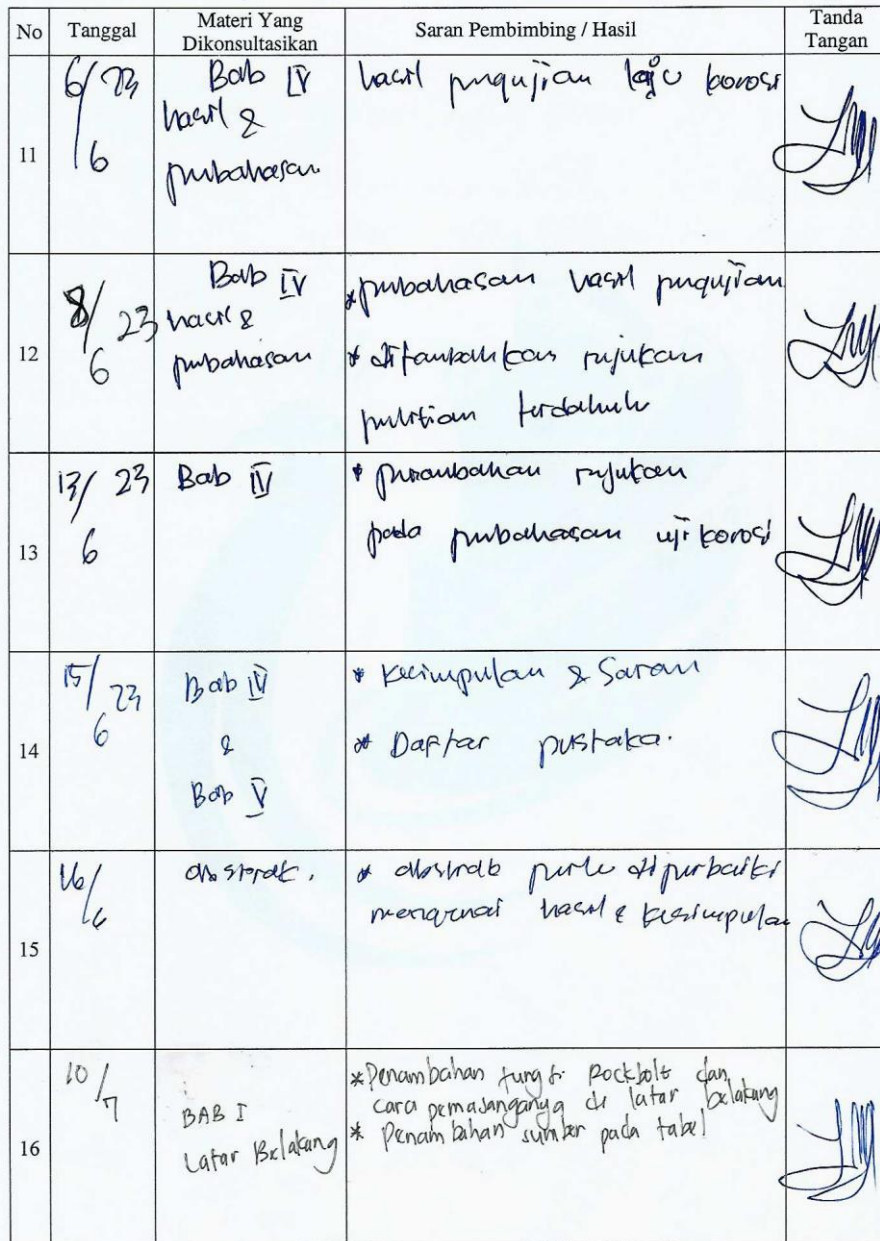 No Tanggal Materi Yang Dikonsultasikan Saran Pembimbing / Hasil Tanda Tangan
11 6/6 23 Bab IV hasil pengujian laju korosi
hasil &
pembahasan.
12 8/6 23 Bab IV * pembahasan hasil pengujian
hasil &
pembahasan * ditambahkan rujukan
penelitian terdahulu
13 13/6 23 Bab IV * penambahan rujukan
pada pembahasan uji korosi
14 15/6 23 Bab IV * Kesimpulan & Saran
& * Daftar pustaka.
Bab V
15 16/6 abstrak. * abstrak perlu diperbaiki
mengenai hasil & kesimpulan
16 10/7 BAB I
Latar Belakang
* Penambahan fungsi Rockbolt dan
cara pemasanganya di latar belakang
* Penambahan sumber pada tabel